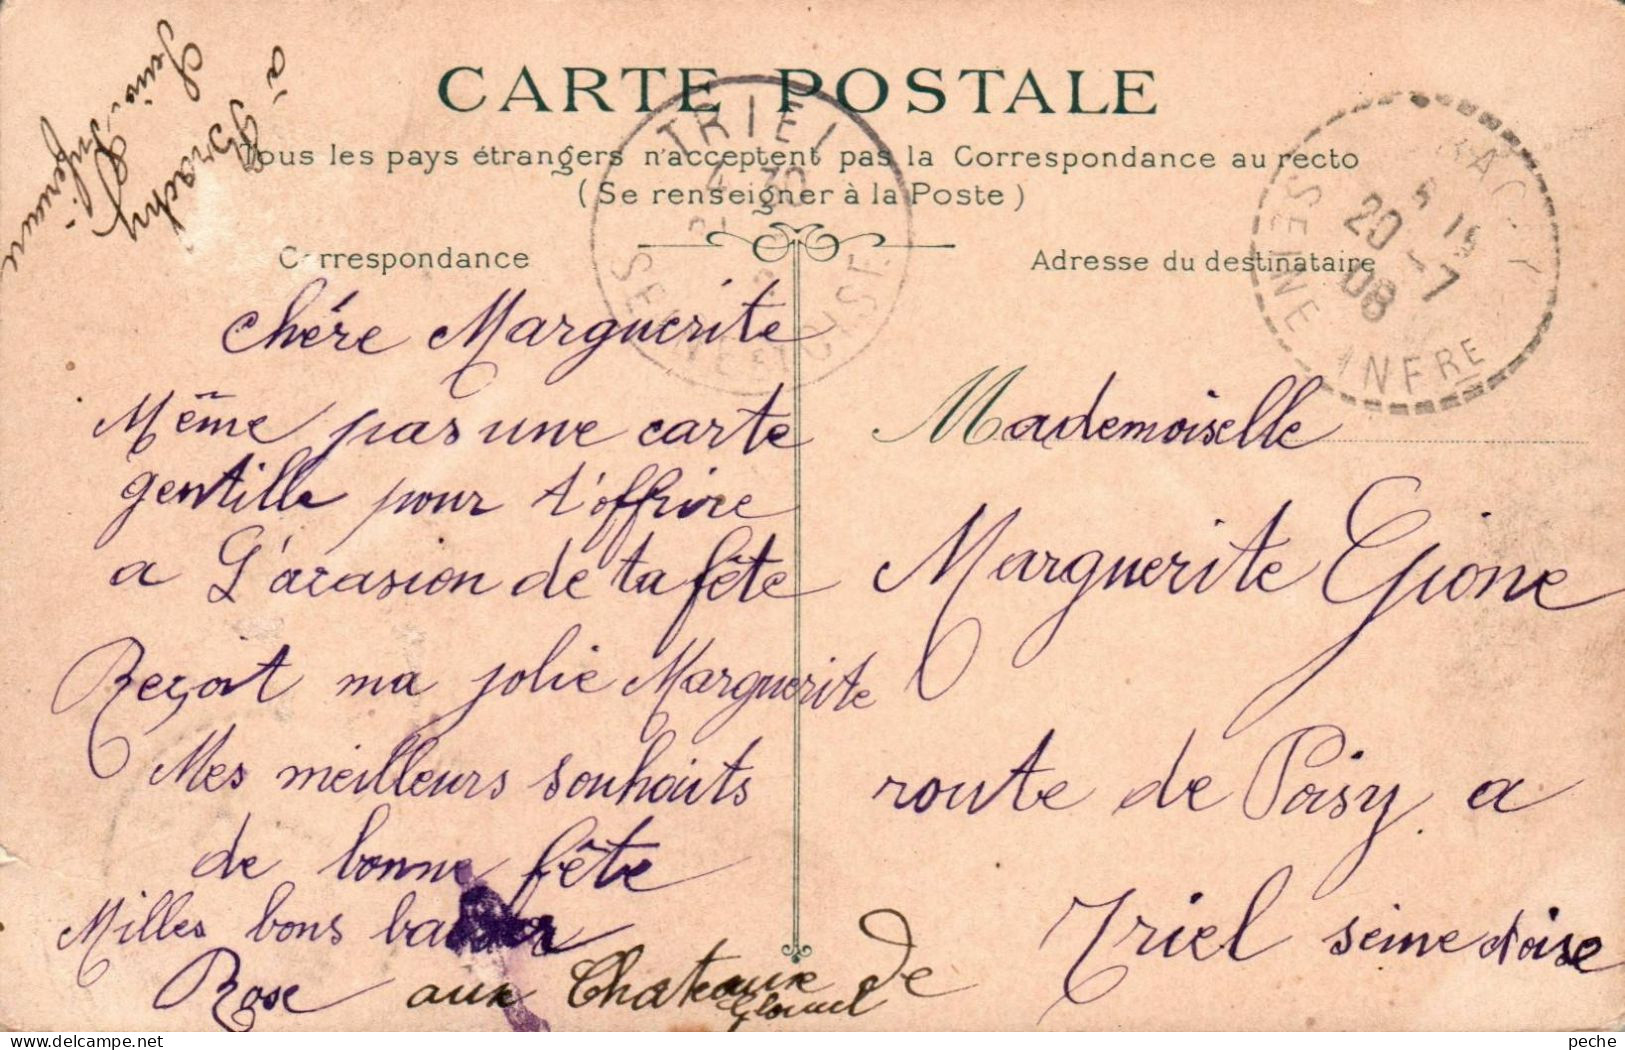 CARTE POSTALE
Tous les pays étrangers n'acceptent pas la Correspondance au recto
(Se renseigner à la Poste)
Correspondance
Adresse du destinataire
à Brachy
Seine-Inférieure
TRIEL
SEINE
BRACHY
5 15
20 -7
08
SEINE INFRE
Chére Marguerite
Même pas une carte
gentille pour t'offrire
a L'acasion de ta fête
Reçoit ma jolie Marguerite
Mes meilleurs souhaits
de bonne fête
Milles bons
Rose aux Chateaux de
Mademoiselle
Marguerite Gione
route de Poisy a
Triel seine et oise
peche